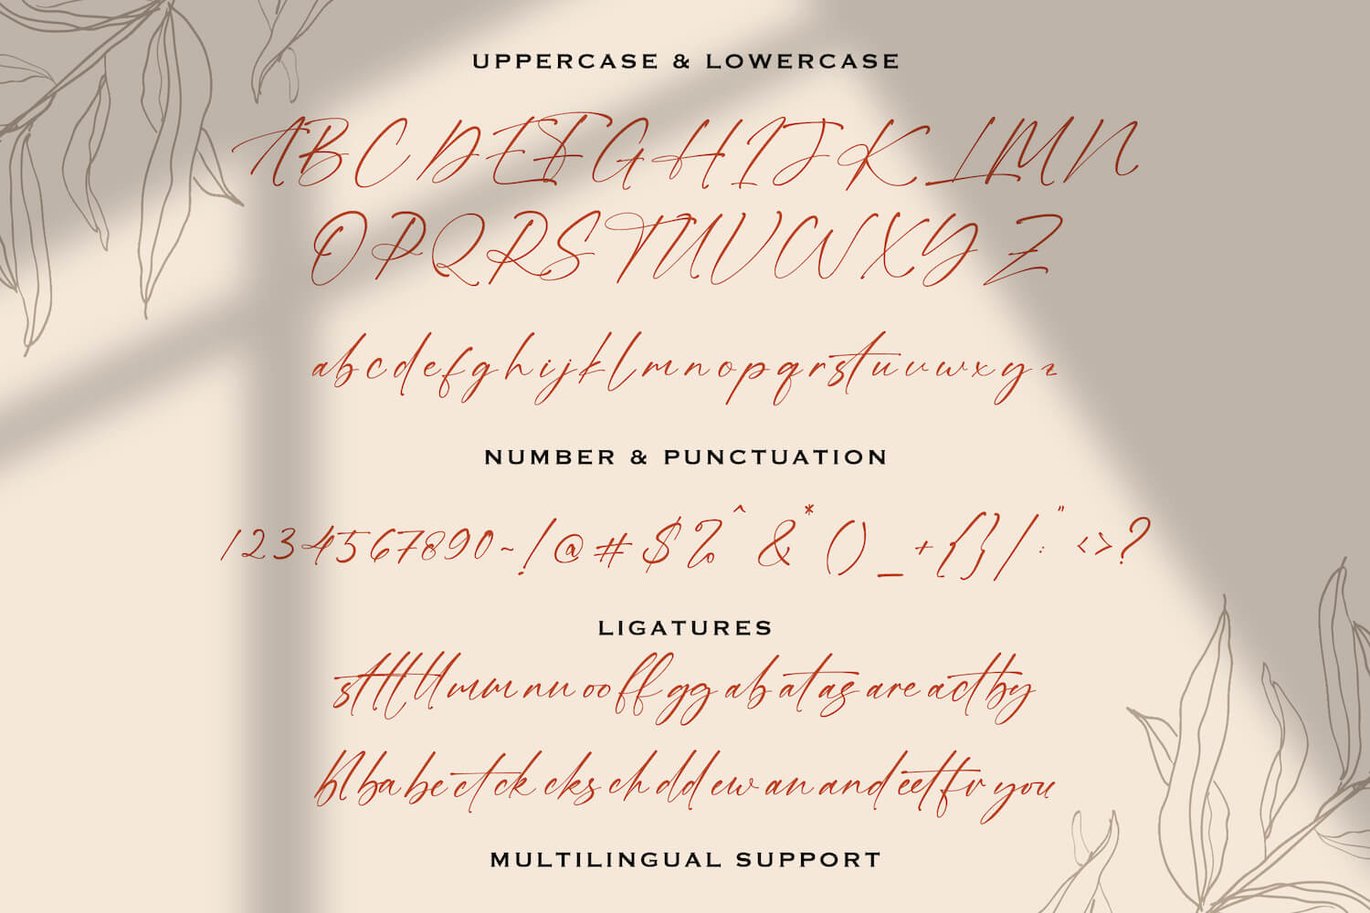 UPPERCASE & LOWERCASE
A B C D E F G H I J K L M N
O P Q R S T U V W X Y Z
a b c d e f g h i j k l m n o p q r s t u v w x y z
NUMBER & PUNCTUATION
1 2 3 4 5 6 7 8 9 0 - ! @ # $ % ^ & * ( ) _ + { } / : " < > ?
LIGATURES
st tt ll mm nn oo ff gg ab at as are act by
bl ba be ct ck cks ch dd ew an and eet fr you
MULTILINGUAL SUPPORT